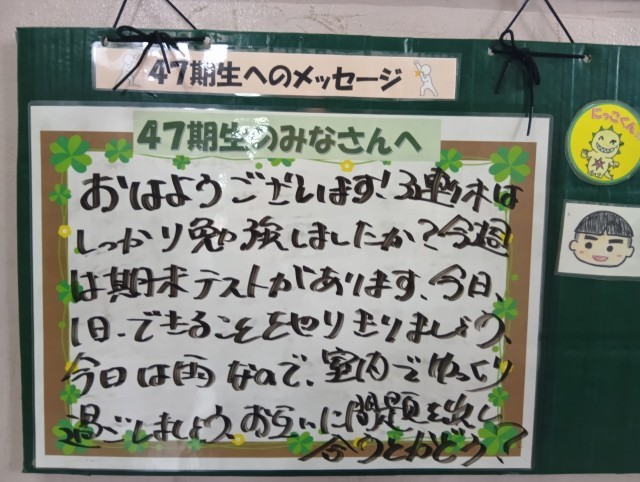 47期生へのメッセージ
47期生のみなさんへ
おはようございます!週末は
しっかり勉強しましたか?今週
は期末テストがあります、今日、
1日、できることをやりきりましょう、
今日は雨なので、室内でゆっくり
過ごしましょう、おらいに問題を出し
合うとかどう?
にっこくん